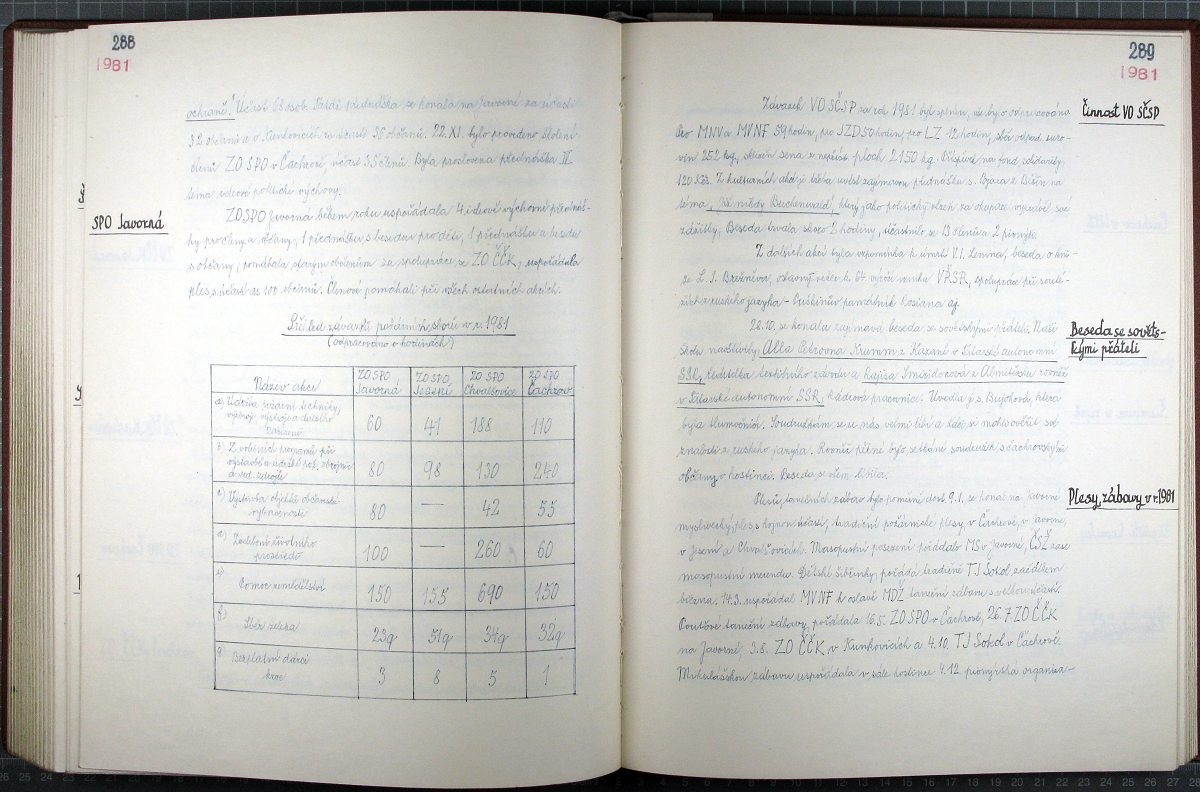 288
1981
ochraně." Účast 68 osob. Další přednáška se konala na Javorné za účasti
32 občanů a v Kunkovicích za účasti 38 občanů. 22. XI. bylo provedeno školení
členů ZO SPO v Čachrově, účast 35 členů. Byla proslovena přednáška II.
téma odborné politické výchovy.
SPO Javorná
ZO SPO Javorná během roku uspořádala 4 ideově výchovné přednáš-
ky pro členy a občany, 1 přednášku s besedou pro děti, 1 přednášku a besedu
s občany, pomáhala starým občanům za spolupráce se ZO ČČK, uspořádala
ples s účastí as 100 občanů. Členové pomáhali při všech ostatních akcích.
Přehled závazků požárních sborů v r. 1981
(odpracováno v hodinách)
Název akce ZO SPO Javorná ZO SPO Jesení ZO SPO Chvalšovice ZO SPO Čachrov
a) Údržba požární techniky, výzbroj, výstroje a dalšího zařízení 60 41 188 110
b) Z volebních programů při výstavbě a údržbě pož. zbrojnic a vod. zdrojů 80 98 130 240
c) Výstavba objektů občanské vybavenosti 80 — 42 55
d) Zvelebení životního prostředí 100 — 260 60
e) Pomoc zemědělství 150 155 690 150
f) Sběr železa 23q 51q 34q 32q
g) Bezplatní dárci krve 3 8 5 1
289
1981
Činnost VO SČSP
Závazek VO SČSP za rok 1981 byl splněn, neboť bylo odpracováno
pro MNV a MVNF 59 hodin, pro JZD 50 hodin, pro LZ 12 hodin, sběr odpad. suro-
vin 252 kg, sklizeň sena z nepříst. ploch 2150 kg. Příspěvek na fond solidarity
120 Kčs. Z kulturních akcí je třeba uvést zajímavou přednášku s.
téma "Už nikdy Buchenwald", který jako politický vězeň za okupace vyprávěl své
zážitky. Beseda trvala skoro 2 hodiny, účastnilo se 13 členů a 2 pionýři.
Z dalších akcí byla vzpomínka k úmrtí V.I. Lenina, beseda o kni-
ze L. I. Brežněva, oslavný večer k 64. výročí vzniku VŘSR, spolupráce při soutě-
žích z ruského jazyka - Puškinův památník aj.
Beseda se sověts-
kými přáteli
28.10. se konala zajímavá beseda se sovětskými přáteli. Naši
školu navštívily Alla Petrovna Krumm z Kazaně v Tatarské autonomní
SSR, ředitelka textilního závodu a Rajisa z Almetěvsku rovněž
v Tatarské autonomní SSR, kádrová pracovnice. Uvedla je s. Bujoková, která
byla tlumočnicí. Soudružkám se u nás velmi líbí a žáci si mohli ověřit své
znalosti z ruského jazyka. Rovněž pěkné bylo setkání soudružek s čachrovskými
občany v hostinci. Beseda se všem líbila.
Plesy, zábavy v r. 1981
Plesů, tanečních zábav bylo poměrně dost. 9.1. se konal na Javorné
myslivecký ples s hojnou účastí, tradiční požárnické plesy v Čachrově, v Javorné,
v Jesení a Chvalšovicích. Masopustní posezení pořádalo MS v Javorné, ČSŽ zase
masopustní merendu. Dětské šibřinky pořádá tradičně TJ Sokol začátkem
března. 14.3. uspořádal MVNF k oslavě MDŽ taneční zábavu s velkou účastí.
Pouťové taneční zábavy pořádala 16.5. ZO SPO v Čachrově, 26.7. ZO ČČK
na Javorné, 3.8. ZO ČČK v Kunkovicích a 4.10. TJ Sokol v Čachrově.
Mikulášskou zábavu uspořádala v sále hostince 4.12. pionýrská organiza-